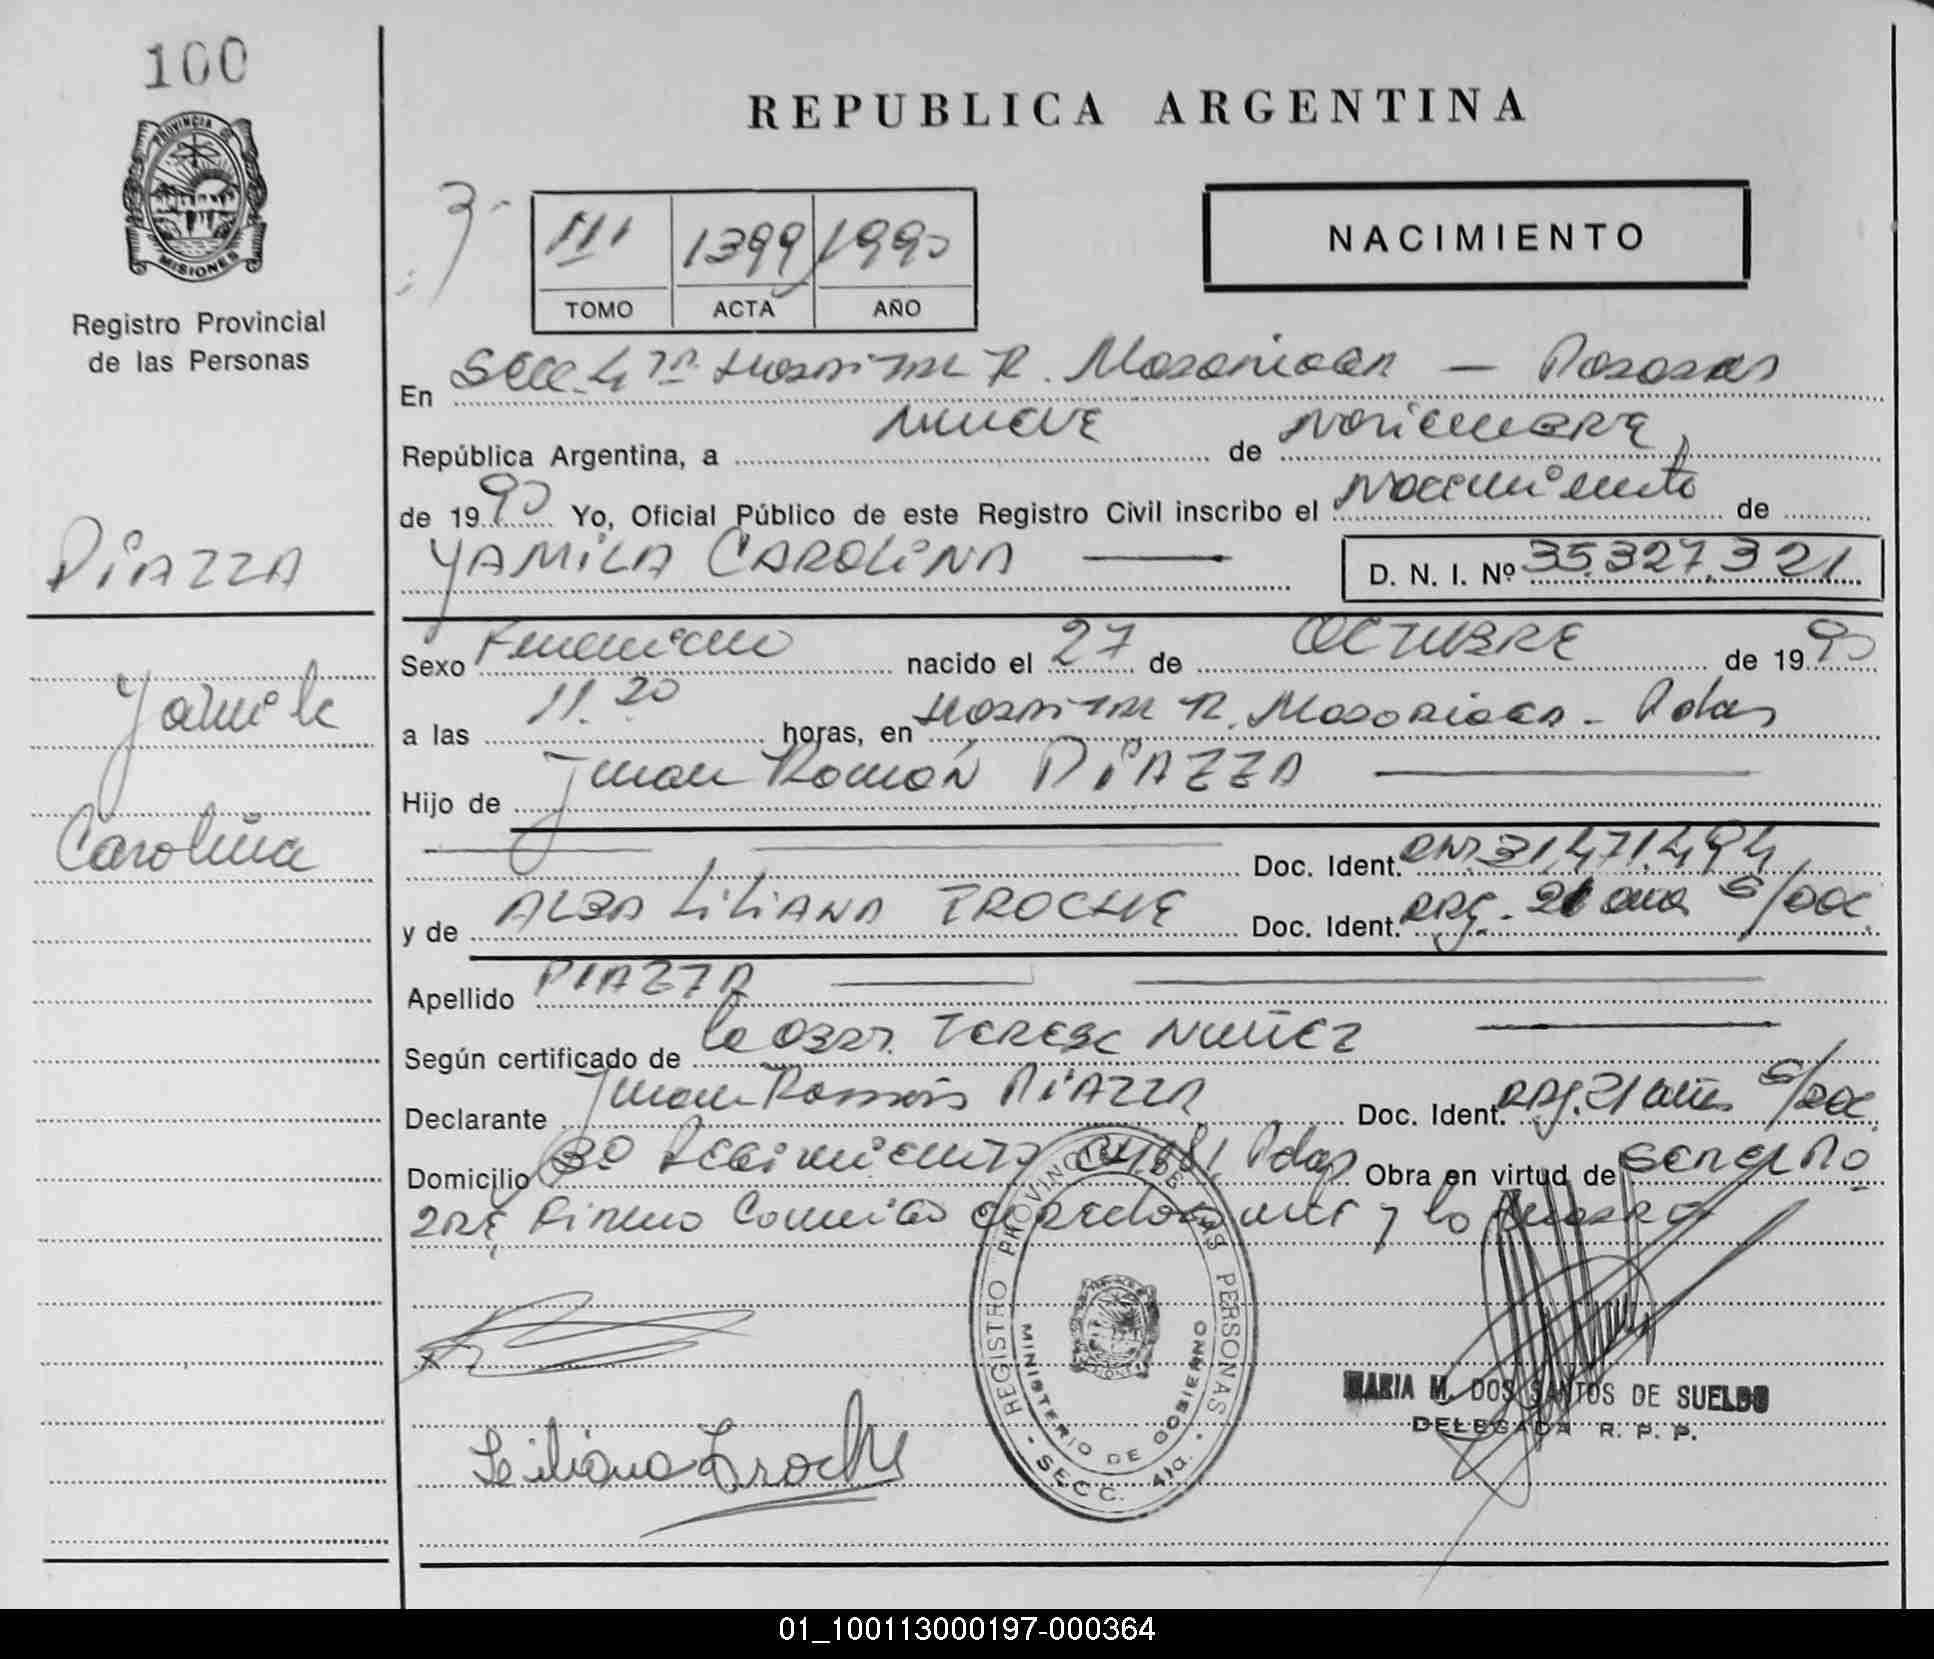 100
PROVINCIA DE
MISIONES
Registro Provincial
de las Personas
PIAZZA
Yamila
Carolina
REPUBLICA ARGENTINA
3
III 1399 1990
TOMO ACTA AÑO
NACIMIENTO
En Secc. 4ta Hospital R. Madariaga — Posadas
República Argentina, a nueve de noviembre
de 1990 Yo, Oficial Público de este Registro Civil inscribo el nacimiento de
YAMILA CAROLINA —
D. N. I. Nº 35.327.321
Sexo Femenino nacido el 27 de OCTUBRE de 1990
a las 11.20 horas, en Hospital R. Madariaga - Pdas
Hijo de Juan Ramón PIAZZA —
Doc. Ident. DNI. 31.471.494
y de ALBA LILIANA TROCHE Doc. Ident. Arg. años s/doc
Apellido PIAZZA —
Según certificado de la Obst. Teresa NUÑEZ —
Declarante Juan Ramón PIAZZA Doc. Ident. Arg. 21 años s/doc
Domicilio Pdas Obra en virtud de ser el pa
dre, firma conmigo el declarante y la madre
Liliana Troche
REGISTRO PROVINCIAL DE LAS PERSONAS
MINISTERIO DE GOBIERNO
SECC. 4ta.
MARIA M. DOS SANTOS DE SUELDO
DELEGADA R. P. P.
01_100113000197-000364